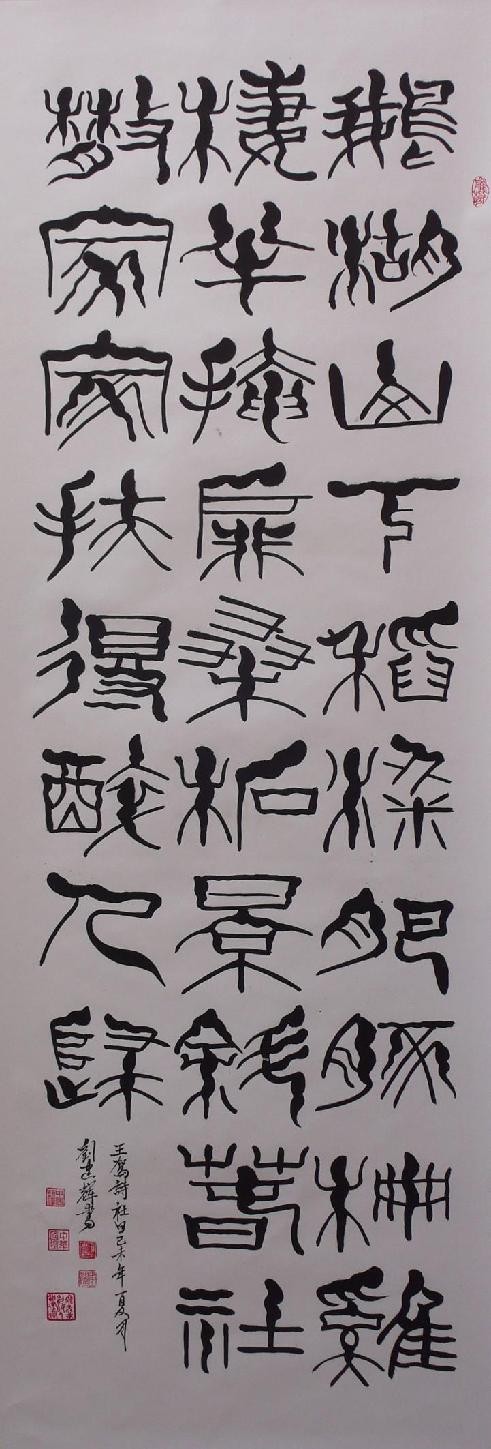 鵝湖山下稻粱肥豚柵雞
棲半掩扉桑柘景斜春社
散家家扶得醉人歸
王駕詩社日己未年夏月
劉輝書